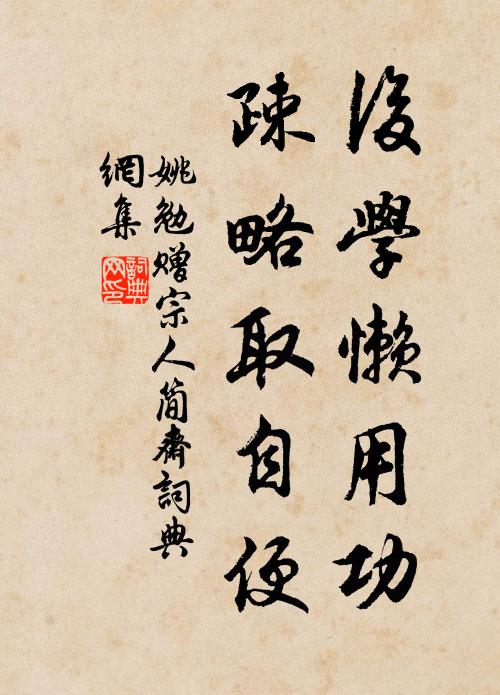 後學懶用功
疎略取自便
姚勉贈宗人簡齋詞典
網集
詞典網印